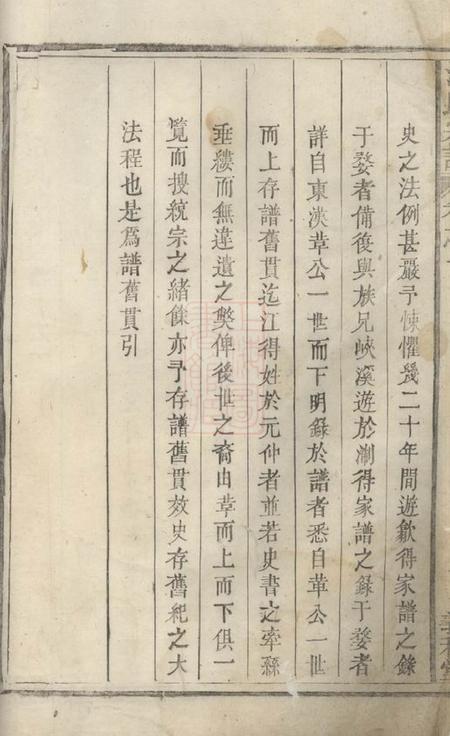 史之法例甚嚴予悚懼幾二十年間遊歙得家譜之錄
于婺者備復與族兄峽溪遊於淛得家譜之錄于婺者
詳自東漢革公一世而下明錄於譜者悉自革公一世
而上存譜舊貫迄江得姓於元仲者並若史書之牽繇
垂縷而無違遺之獘俾後世之裔由革而上而下俱一
覽而搜統宗之緒餘亦予存譜舊貫效史存舊紀之大
法程也是爲譜舊貫引